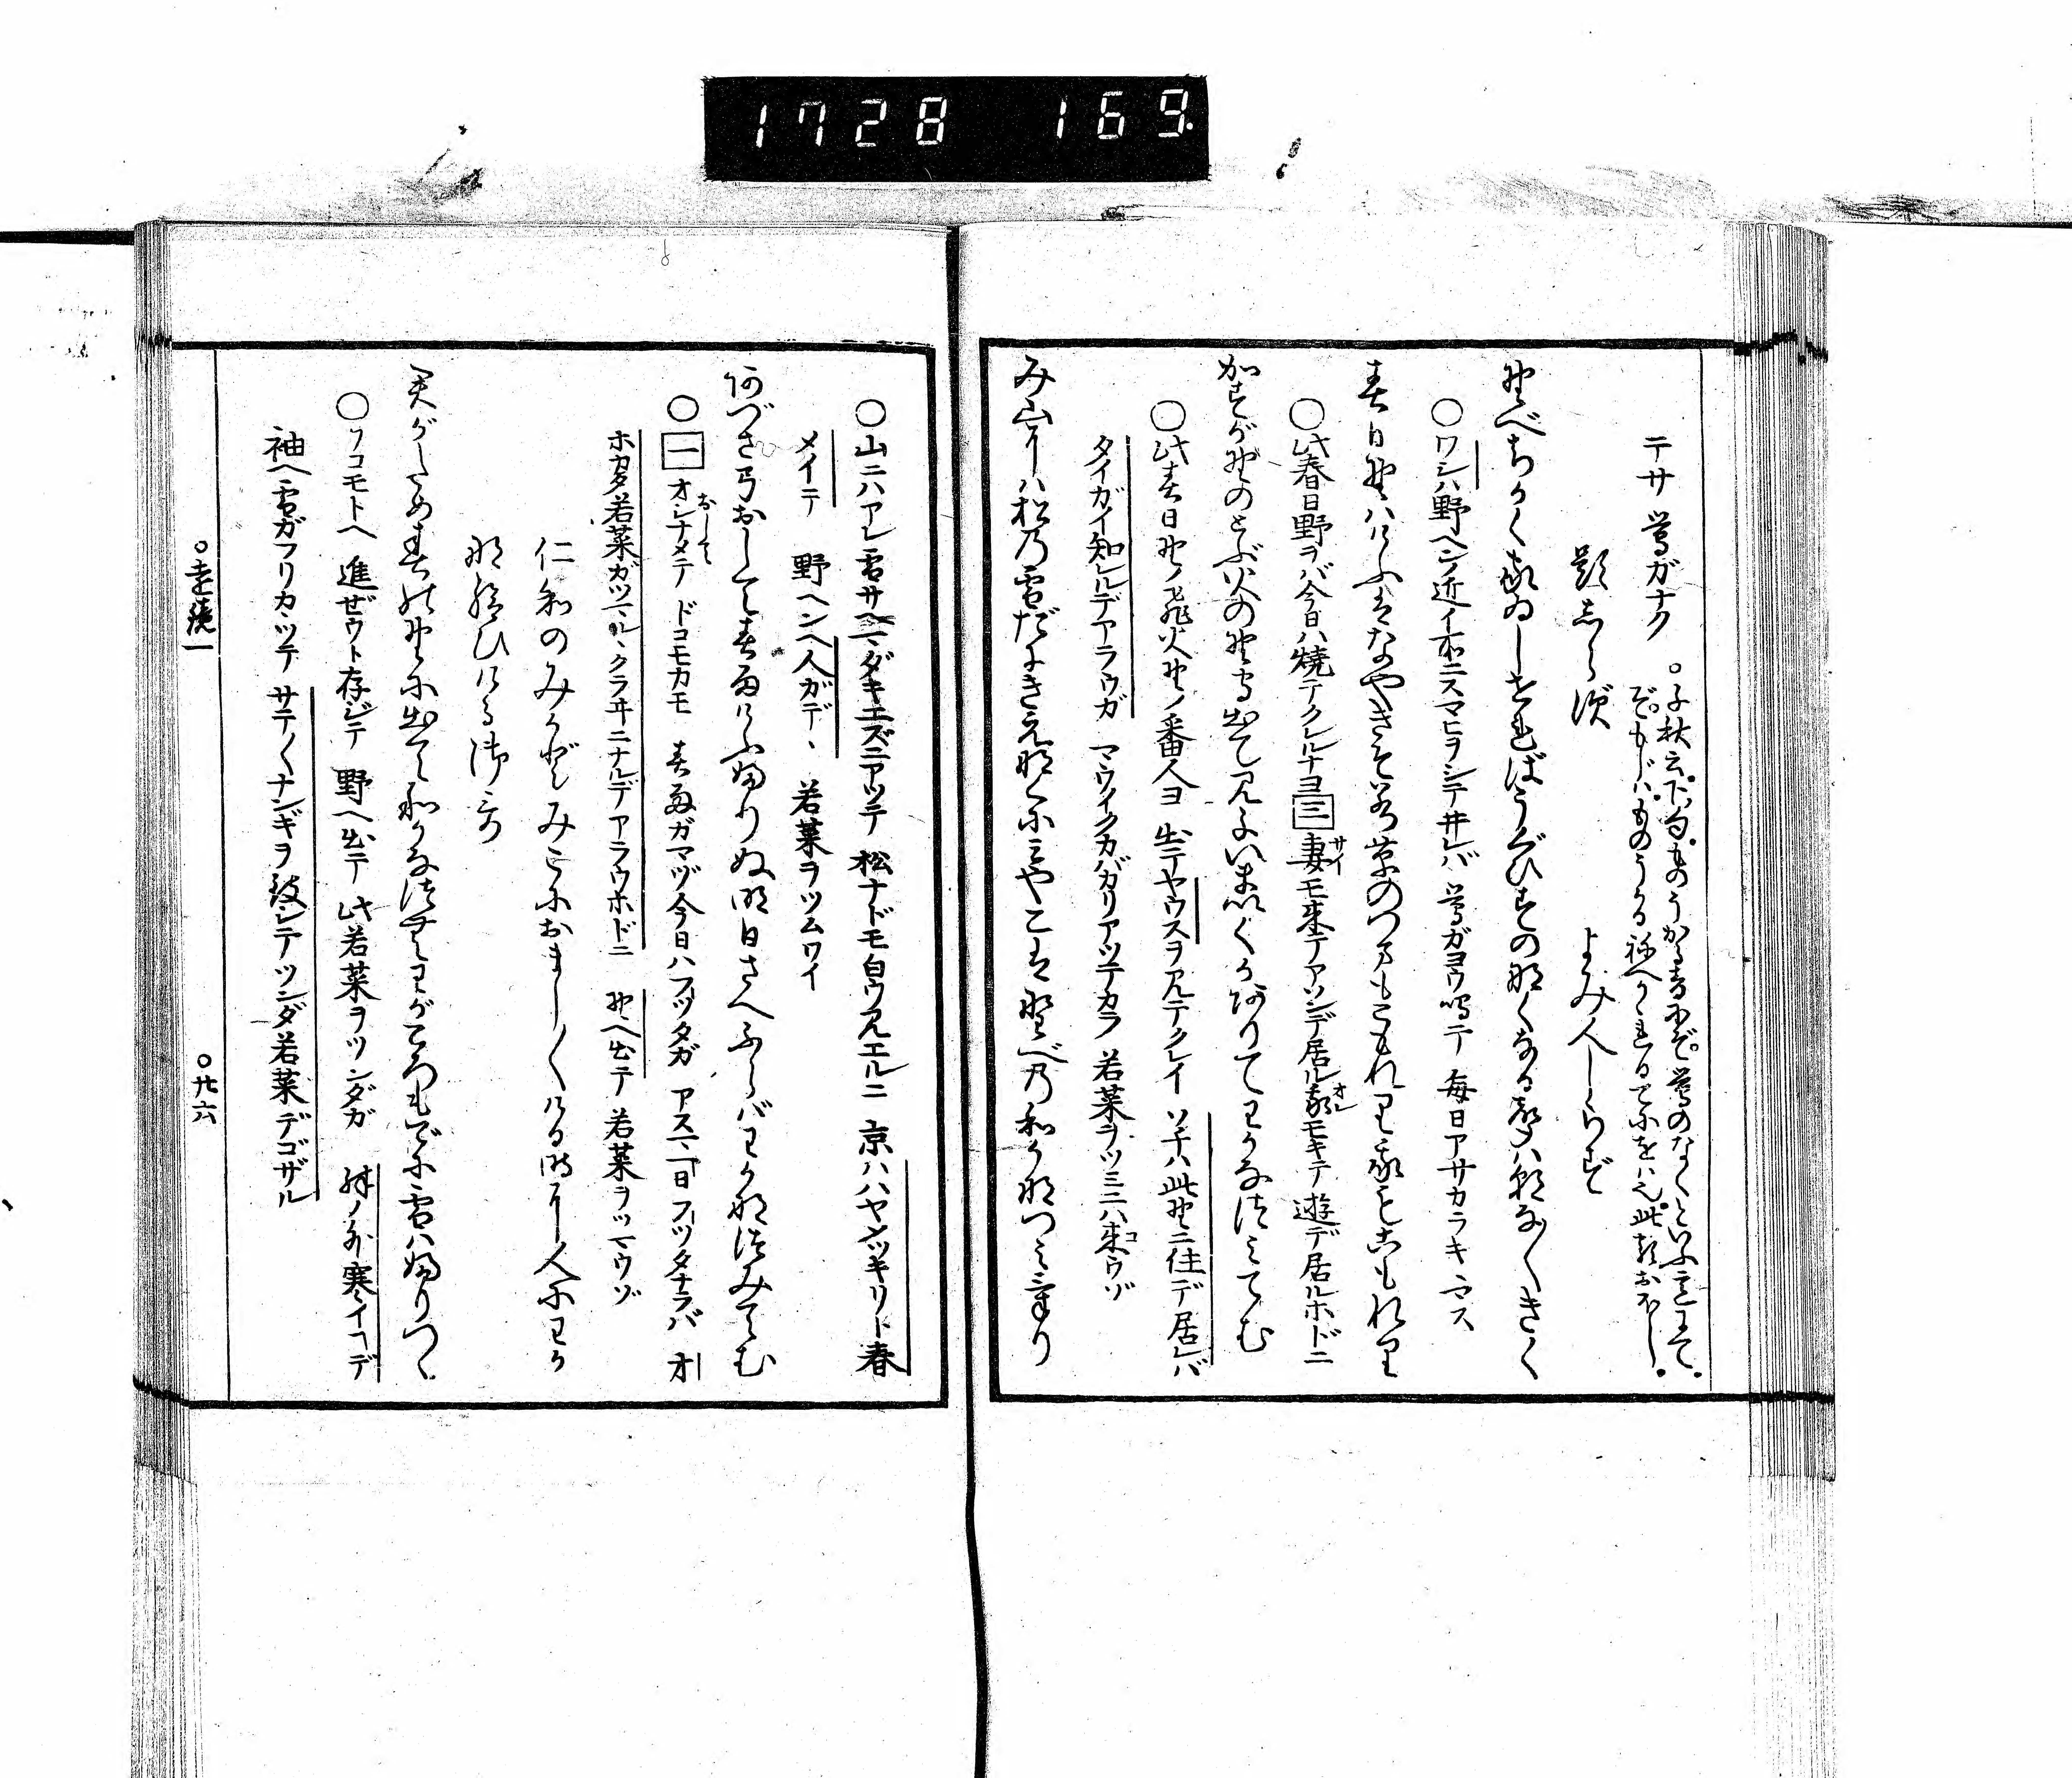 1728 169
テサ 鶯ガナク
○千秋云。下句。ものうかる音にぞ。鶯のなくといふ意にて。
ぞもじハ。ものうかる祢へかゝれるてにをは也。此類おほし。
題しらず よみ人しらず
野べちかく家ゐしせればうぐひすの那くなる声ハ朝な〱きく
○ワシハ野ヘンノ近イ所ニスマヒヲシテ井レバ 鶯ガヨウ鳴テ 毎日アサカラキマス
春日野ハけふはなやきそ若草のつまもこもれり我もこもれり
○此春日野ヲバ今日ハ焼テクレルナヨ 三 妻モ来テアソンデ居ル 我モキテ遊デ居ルホドニ
サイ
オレ
かすが野のとぶ火の野守出て見よいま幾かありてわかな津ミてむ
○此春日野ノ飛火野ノ番人ヨ 出テヤウスヲ見テクレイ ソチハ此野ニ住デ居レバ
タイガイ知レルデアラウガ マウイクカバカリアツテカラ 若菜ヲツミニハ来ウゾ
コ
み山にハ松乃雪だにきえ那くにミやこは野べ乃和か那つミけり
○山ニハアレ雪サヘマダキエズニアツテ 松ナドモ白ウ見エルニ 京ハハヤシツキリト春
メイテ 野ヘンヘ人ガデヽ 若菜ヲツムワイ
阿づさ弓おして春雨けふ婦りぬ明日さへふらバわか那津みてむ
○一 オシナメテ ドコモカモ 春雨ガマヅ今日ハフツタガ アス一日フツタナラバ オ
おして
ホカタ若菜ガツマルヽクラヰニナルデアラウホドニ 野ヘ出テ 若菜ヲツマウゾ
仁和のみかどみこにおまし〱ける時に人にわか
那給ひける御うた
君がため春の野に出て和かな津むわが衣でに雪ハ婦りつゝ
○ソコモトヘ 進ぜウト存ジテ 野ヘ出テ 此若菜ヲツンダガ 殊ノ外寒イコデ
袖ヘ雪ガフリカヽツテ サテ〱ナンギヲ致シテツンダ若菜デゴザル
○遠鏡一 ○廿六